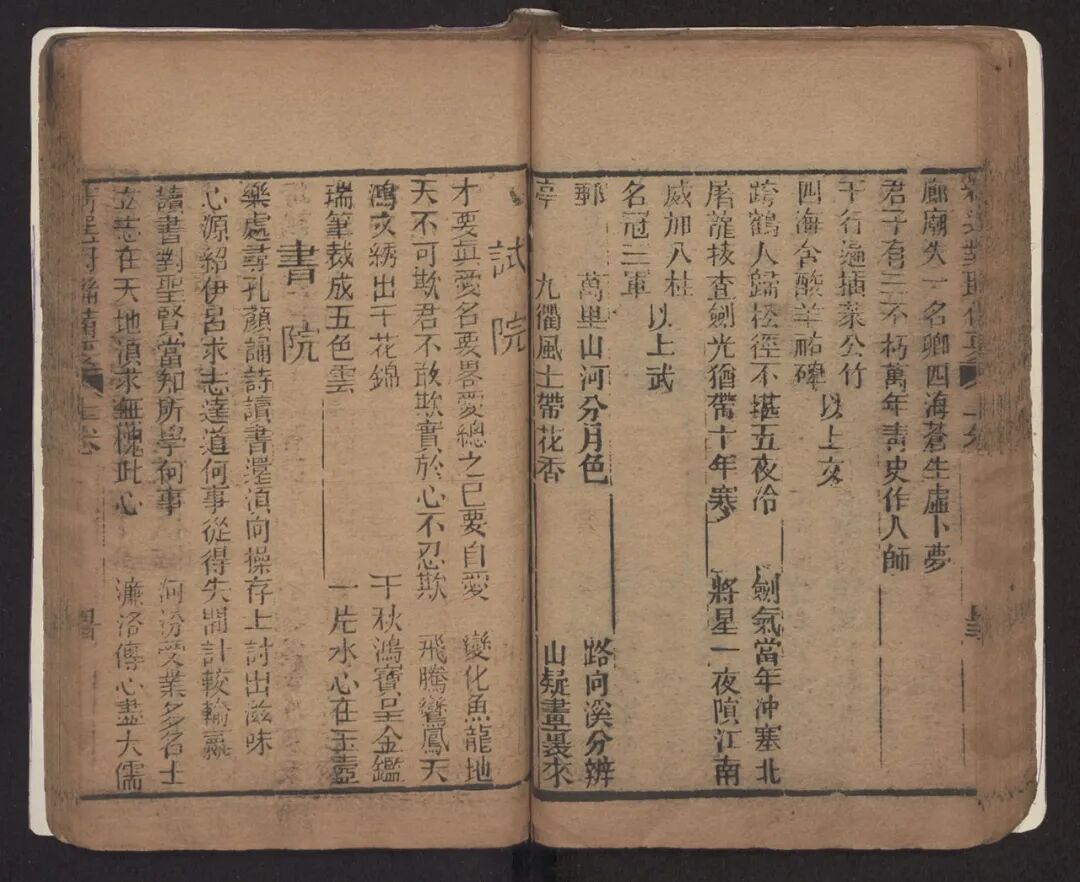 廊廟失一名卿四海蒼生虛卜夢
君子有三不朽萬年靑史作人師
千行遍插萊公竹
四海含酸羊祜碑 以上文
跨鶴人歸松徑不堪五夜冷 劍氣當年冲塞北
屠龍枝查劍光猶帶十年寒 將星一夜隕江南
威加八桂
名冠三軍 以上武
郵 萬里山河分月色 路向溪分辨
亭 九衢風土帶花香 山疑畫裏來
試院
才要眞愛名要畧愛總之已要自愛 變化魚龍地
天不可欺君不敢欺實於心不忍欺 飛騰鸞鳳天
鴻文綉出千花錦 千秋鴻寶呈金鑑
瑞筆裁成五色雲 一片水心在玉壺
書院
樂處尋孔顏誦詩讀書還湏向操存上討出滋味
心源紹伊呂求志達道何事從得失間計較輸贏
讀書對聖賢當知所學何事 河汾受業多名士
立志在天地湏求無愧此心 濂洛傳心盡大儒